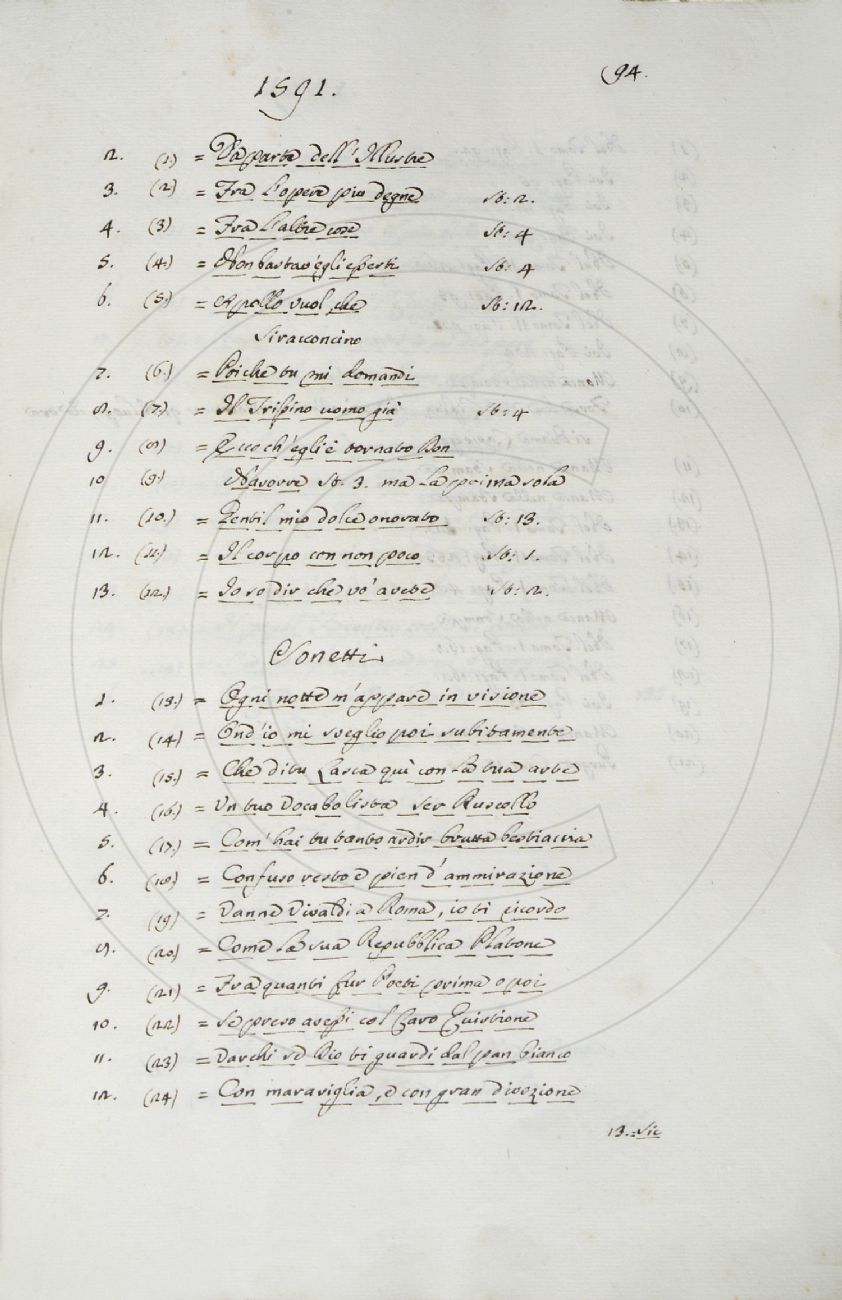 1591.
94.
2. (1) = Da parte dell' Illustre
3. (2) = Fra l'opere piu degne St: 2.
4. (3) = Fra l'altre cose St: 4
5. (4.) = Non bastav'egli St: 4
6. (5.) = Apollo vuol che St: 12.
si racconcino
7. (6.) = Poiche tu mi domandi
8. (7.) = Il Trissino uomo già St: 4
9. (8) = Ecco ch'egli è tornato Don
10 (9.) Nasorre St: 3. ma la prima sola
11. (10.) = Gentil mio dolce onorato St: 13.
12. (11.) = Il corpo con non poco St: 1.
13. (12.) = Io so dir che vo' avete St: 2.
Sonetti
1. (13.) = Ogni notte m'appare in visione
2. (14) = Ond'io mi sveglio poi subitamente
3. (15.) = Che di tu Lasca qui con la tua arte
4. (16.) = Un tuo Vocabolista Ser Ruscello
5. (17.) = Com' hai tu tanto ardir brutta bestiaccia
6. (18.) = Confuso resto e pien d' ammirazione
7. (19) = Vanne Vivaldi a Roma, io ti ricordo
8. (20) = Come la sua Repubblica Platone
9. (21) = Fra quanti fur Poeti prima o poi
10. (22) = Se preso avessi col Caro Quistione
11. (23) = Varchi se Dio ti guardi dal pan bianco
12. (24) = Con maraviglia, e con gran divozione
13. = Sic